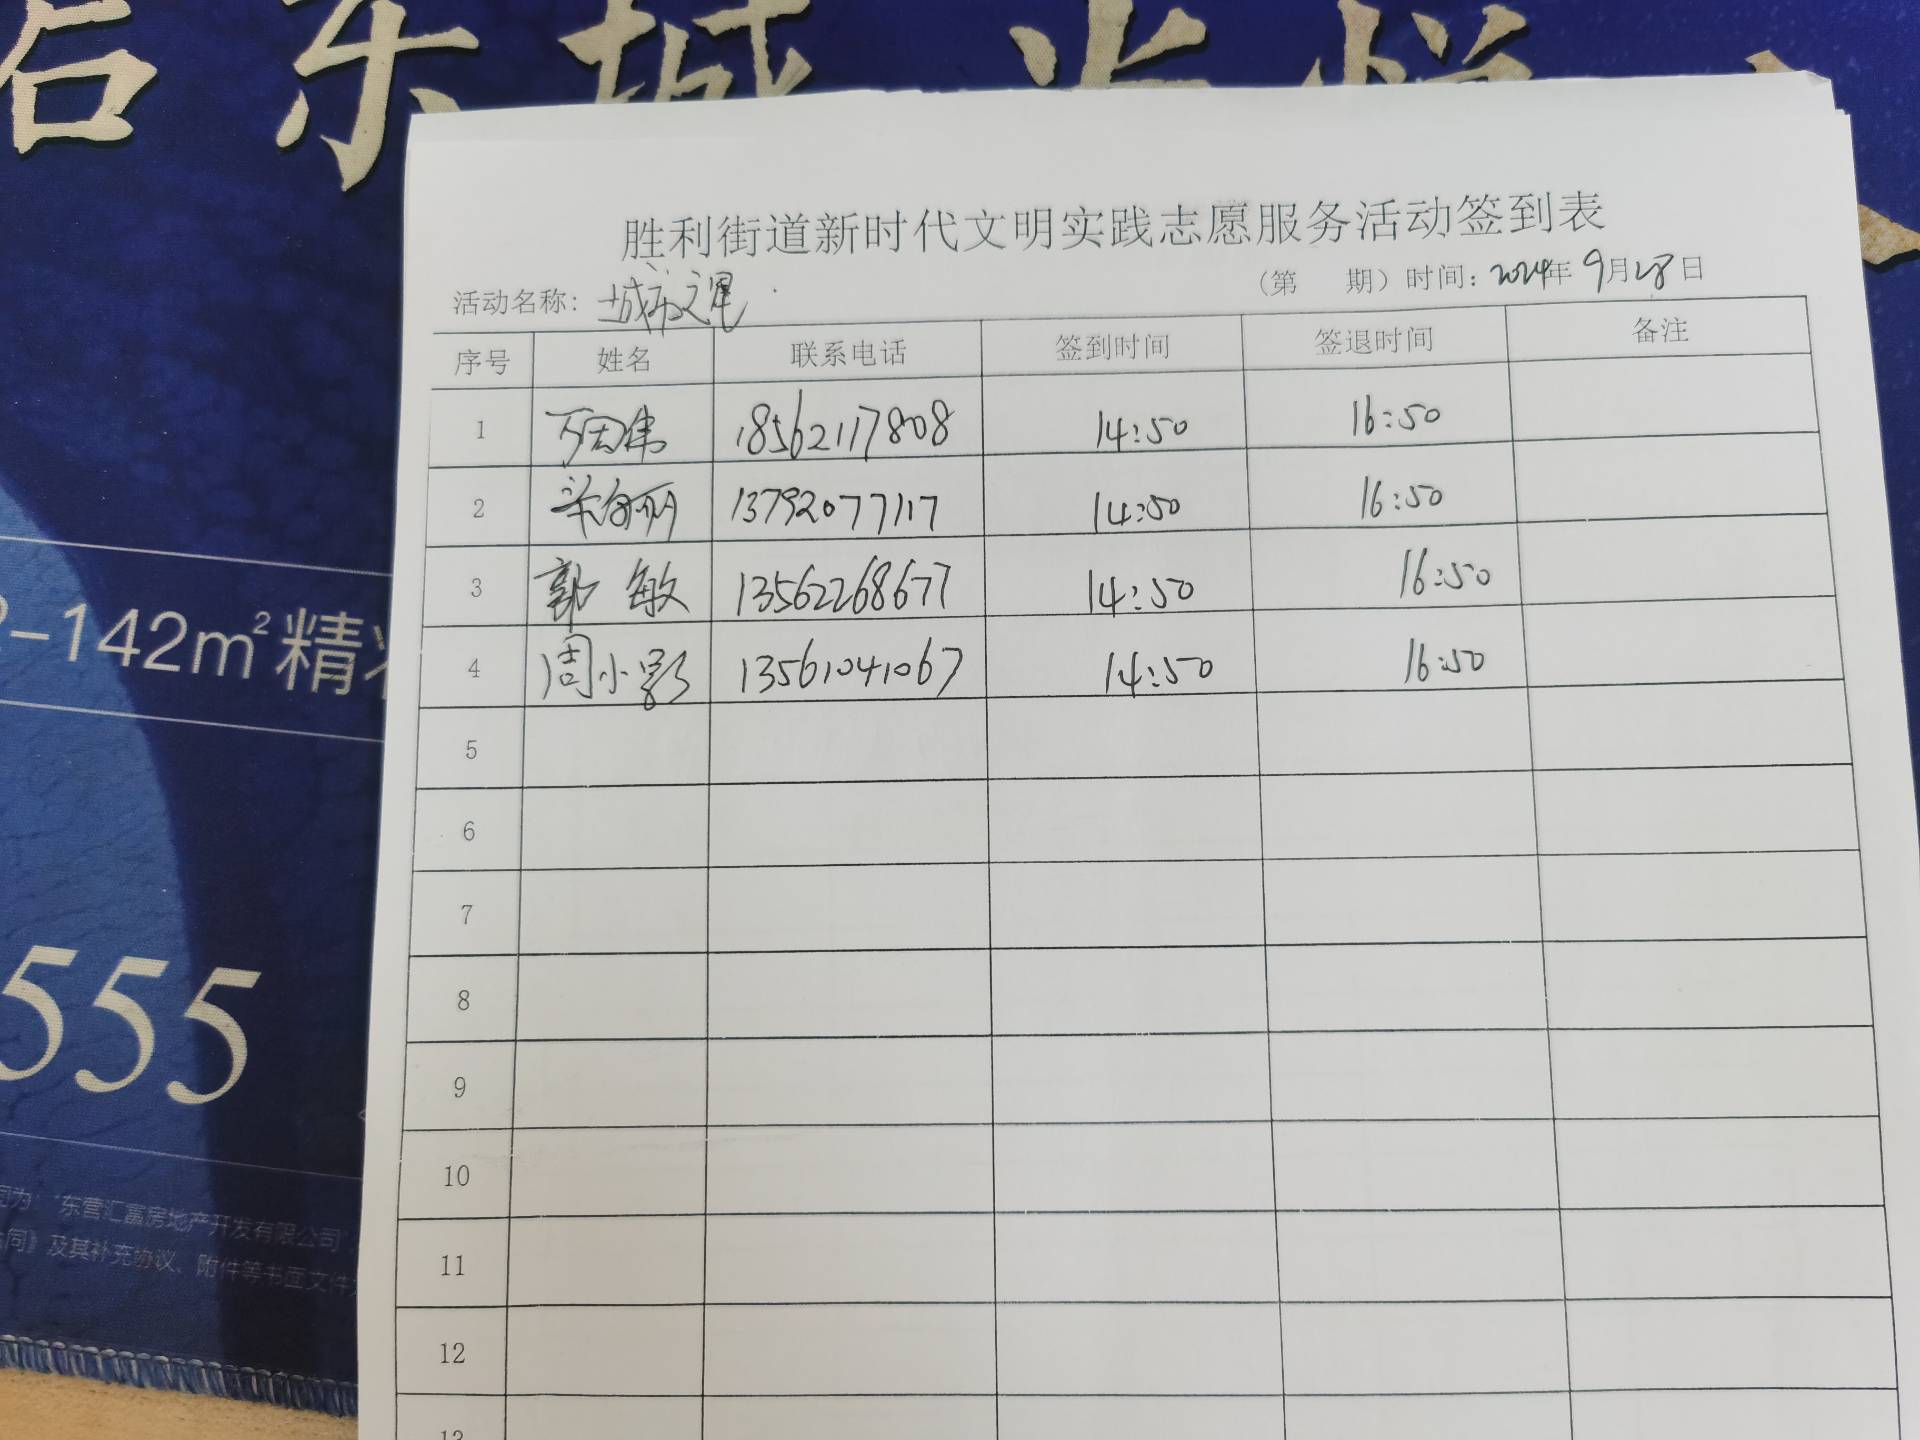 东城
2-142m²精
555
为：“东营汇富房地产开发有限公司”
同》及其补充协议、附件等书面文件
胜利街道新时代文明实践志愿服务活动签到表
活动名称: 城市之星 （第 期）时间: 2024年 9月28日
序号 姓名 联系电话 签到时间 签退时间 备注
1 18562117808 14:50 16:50
2 13792077117 14:50 16:50
3 郭敏 13562268677 14:50 16:50
4 周小影 13561041067 14:50 16:50
5
6
7
8
9
10
11
12
13